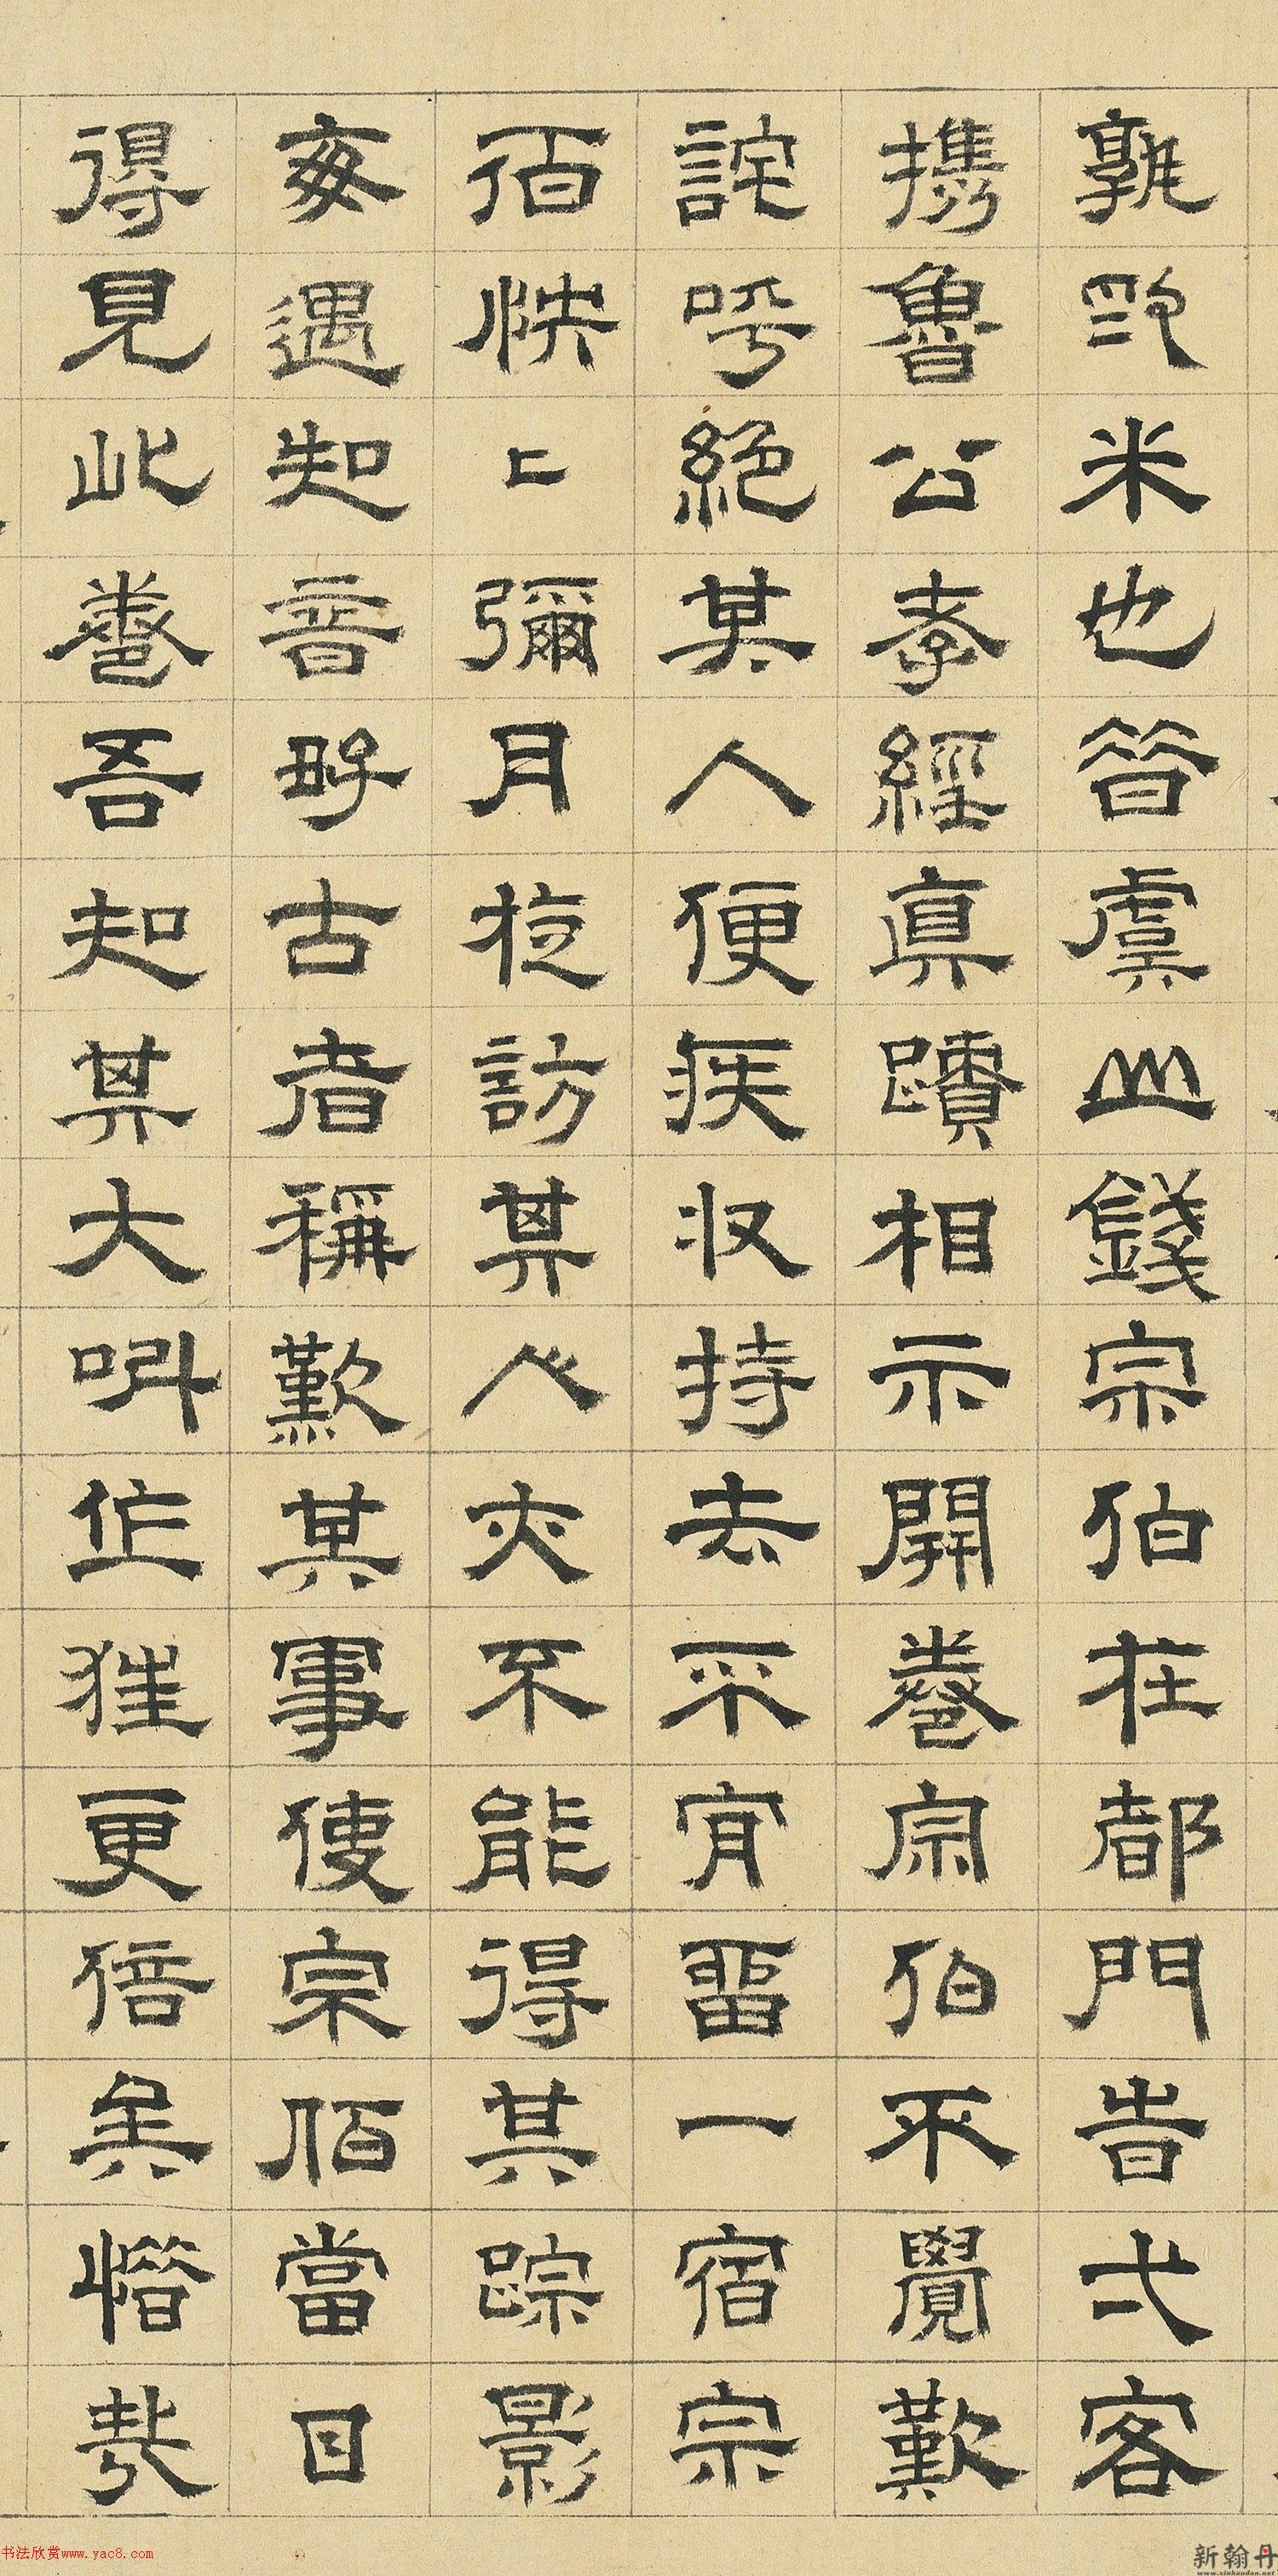 孰㱃米也昝虞山錢宗伯在都門眚弍客
攜魯公孝經真蹟相示開卷宗伯不覺歎
詫呼絕其人便疾收持去不肎畱一宿宗
伯怏〻彌月從訪其人終不能得其踪影
每遇知音好古者稱歎其事使宗伯當日
得見此卷吾知其大叫作狂更倍矣惜哉
书法欣赏www.yac8.com
新翰丹
www.xinhandan.net